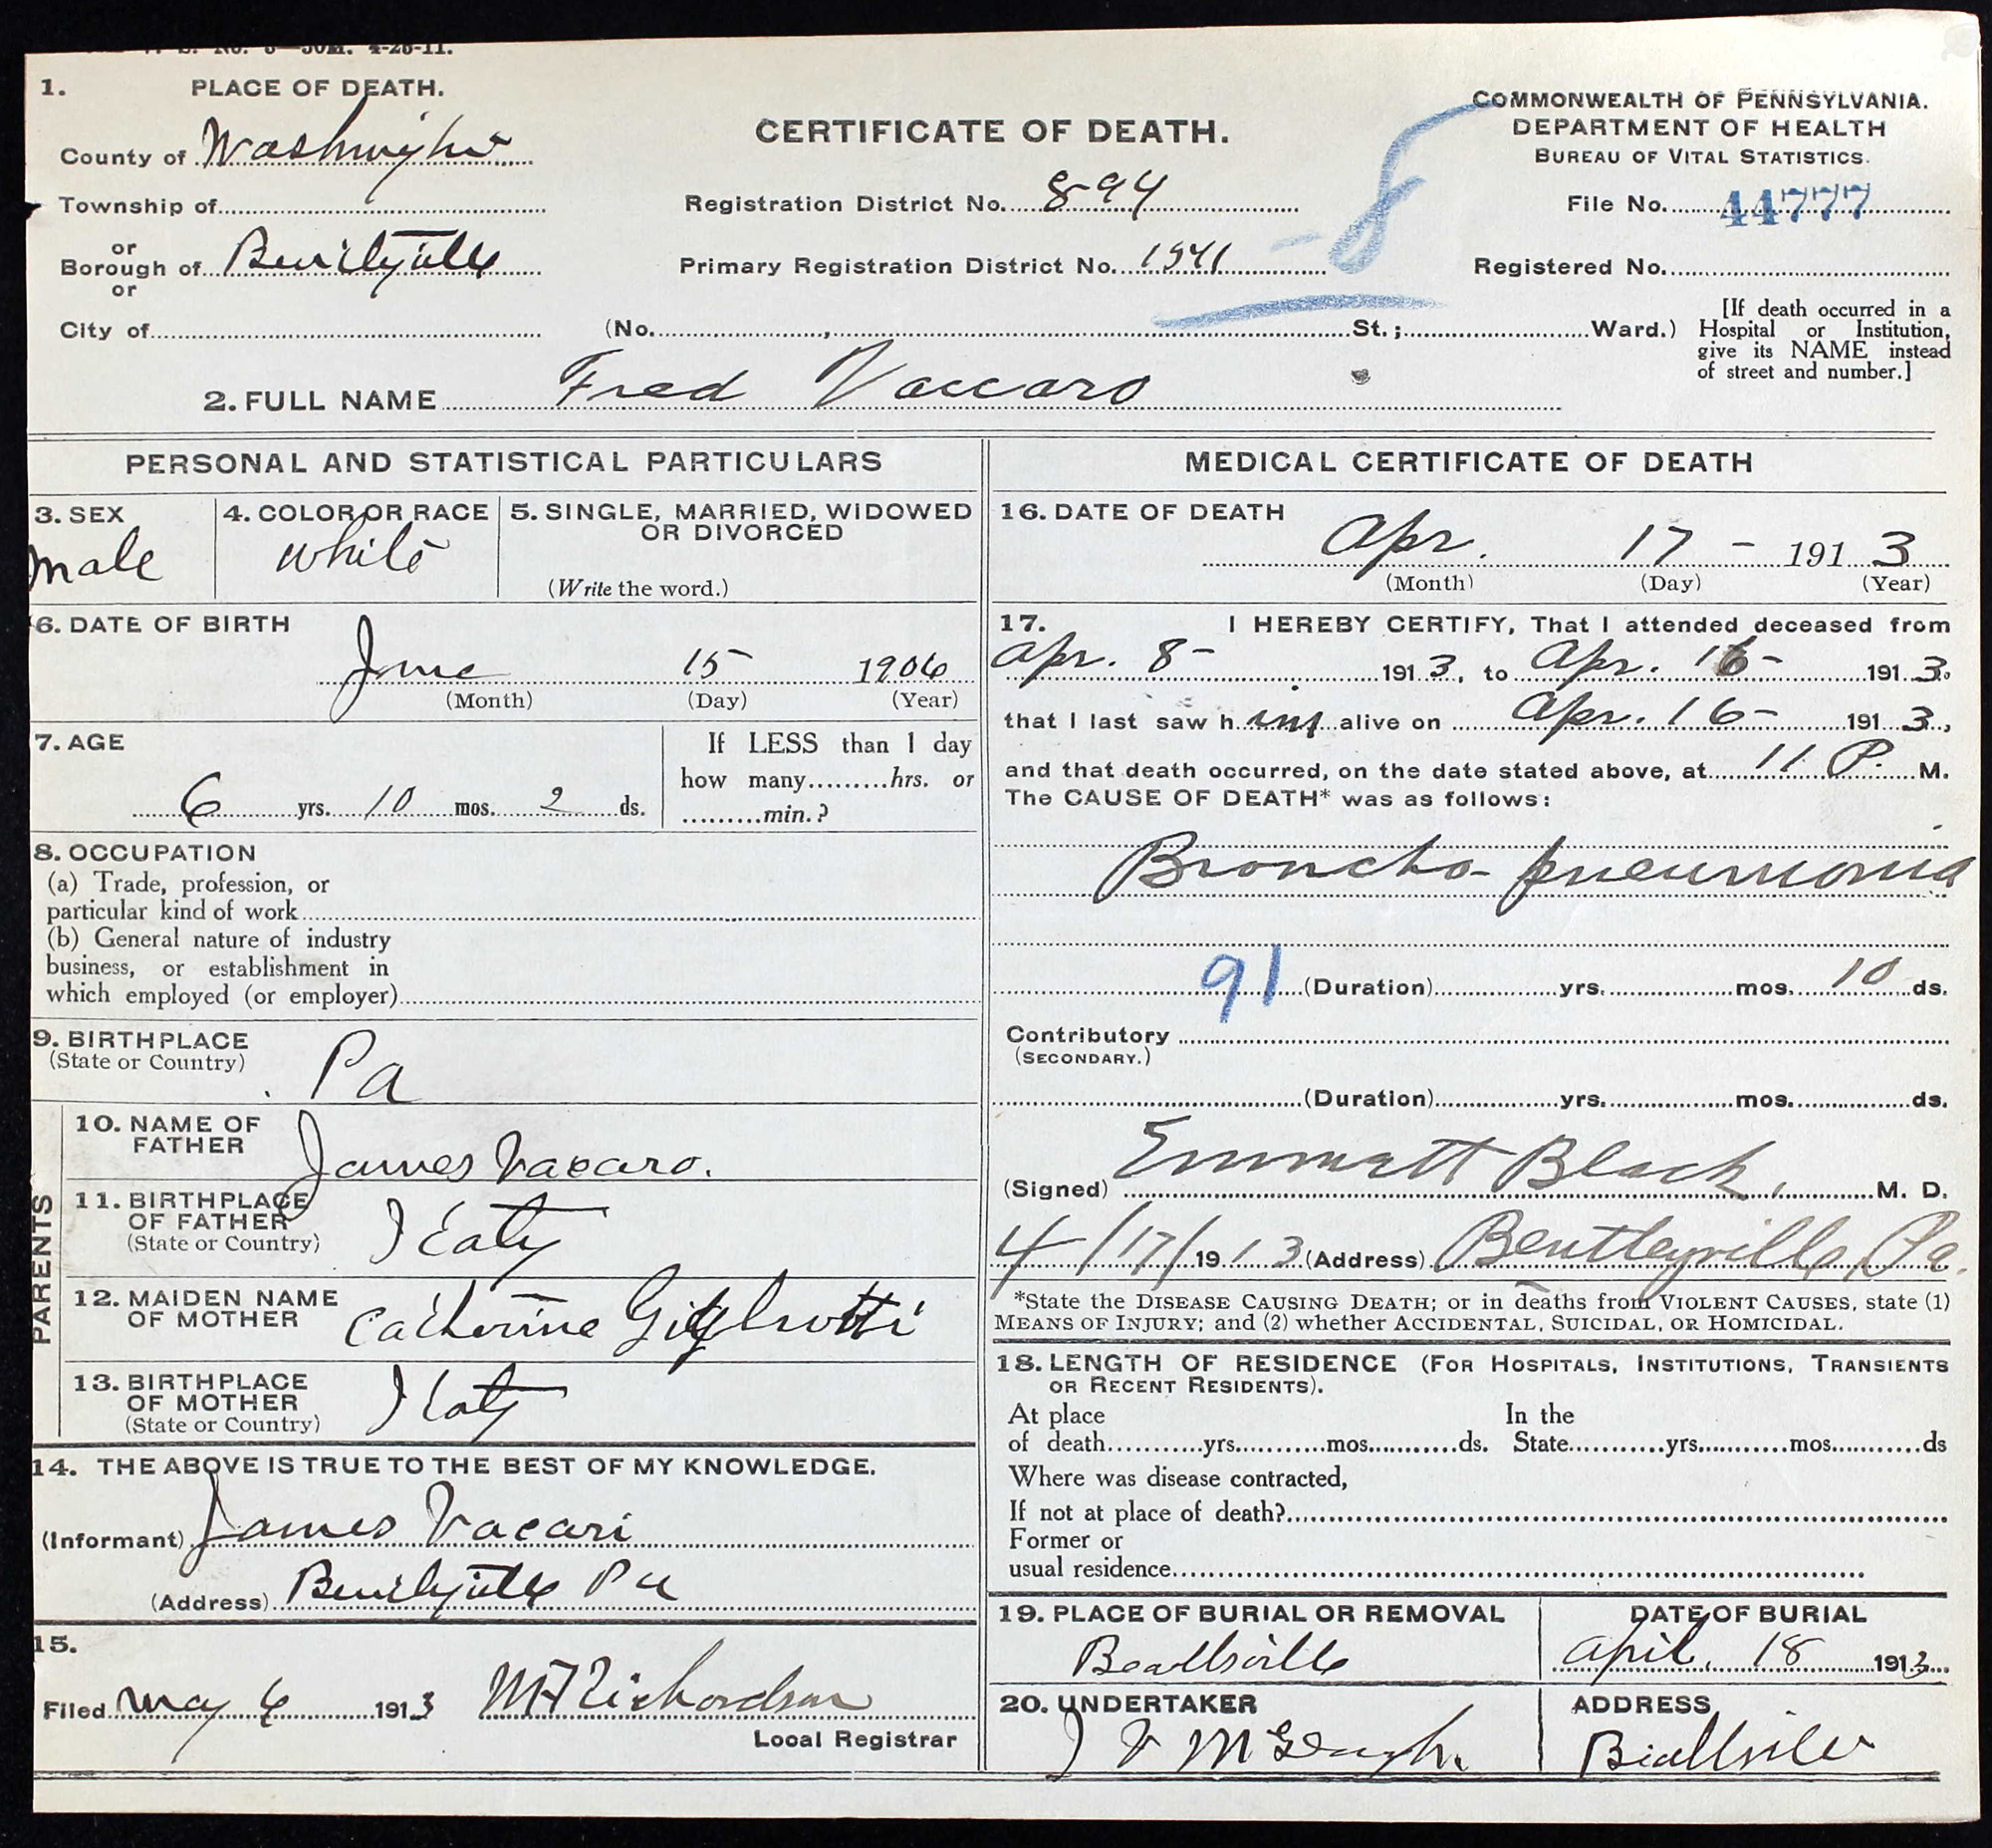 V. S. No. 5—50M. 4-25-11.
1. PLACE OF DEATH.
County of Washington
Township of
or
Borough of Bentleyville
or
City of
CERTIFICATE OF DEATH.
Registration District No. 894
Primary Registration District No. 1541
8
COMMONWEALTH OF PENNSYLVANIA.
DEPARTMENT OF HEALTH
BUREAU OF VITAL STATISTICS.
File No. 44777
Registered No.
(No. , St.; Ward.)
[If death occurred in a
Hospital or Institution,
give its NAME instead
of street and number.]
2. FULL NAME Fred Vaccaro
PERSONAL AND STATISTICAL PARTICULARS
3. SEX
male
4. COLOR OR RACE
white
5. SINGLE, MARRIED, WIDOWED
OR DIVORCED
(Write the word.)
6. DATE OF BIRTH
June 15 1906
(Month) (Day) (Year)
7. AGE
6 yrs. 10 mos. 2 ds.
If LESS than 1 day
how many hrs. or
min.?
8. OCCUPATION
(a) Trade, profession, or
particular kind of work
(b) General nature of industry
business, or establishment in
which employed (or employer)
9. BIRTHPLACE
(State or Country)
Pa
PARENTS
10. NAME OF
FATHER
James Vacaro.
11. BIRTHPLACE
OF FATHER
(State or Country)
Italy
12. MAIDEN NAME
OF MOTHER
Catherine
13. BIRTHPLACE
OF MOTHER
(State or Country)
Italy
14. THE ABOVE IS TRUE TO THE BEST OF MY KNOWLEDGE.
(Informant) James Vacari
(Address) Bentleyville Pa
15.
Filed May 6 1913 Richardson
Local Registrar
MEDICAL CERTIFICATE OF DEATH
16. DATE OF DEATH
Apr. 17 - 1913
(Month) (Day) (Year)
17. I HEREBY CERTIFY, That I attended deceased from
Apr. 8- 1913, to Apr. 16- 1913.
that I last saw him alive on Apr. 16- 1913,
and that death occurred, on the date stated above, at 11 P. M.
The CAUSE OF DEATH* was as follows:
Broncho-pneumonia
91 (Duration) yrs. mos. 10 ds.
Contributory
(SECONDARY.)
(Duration) yrs. mos. ds.
(Signed) Emmett Black, M. D.
4/17/1913 (Address) Bentleyville, Pa.
*State the DISEASE CAUSING DEATH; or in deaths from VIOLENT CAUSES, state (1)
MEANS OF INJURY; and (2) whether ACCIDENTAL, SUICIDAL, OR HOMICIDAL.
18. LENGTH OF RESIDENCE (FOR HOSPITALS, INSTITUTIONS, TRANSIENTS
OR RECENT RESIDENTS).
At place In the
of death yrs. mos. ds. State yrs. mos. ds
Where was disease contracted,
If not at place of death?
Former or
usual residence
19. PLACE OF BURIAL OR REMOVAL
Beallsville
DATE OF BURIAL
April 18 1913
20. UNDERTAKER
ADDRESS
Beallsville